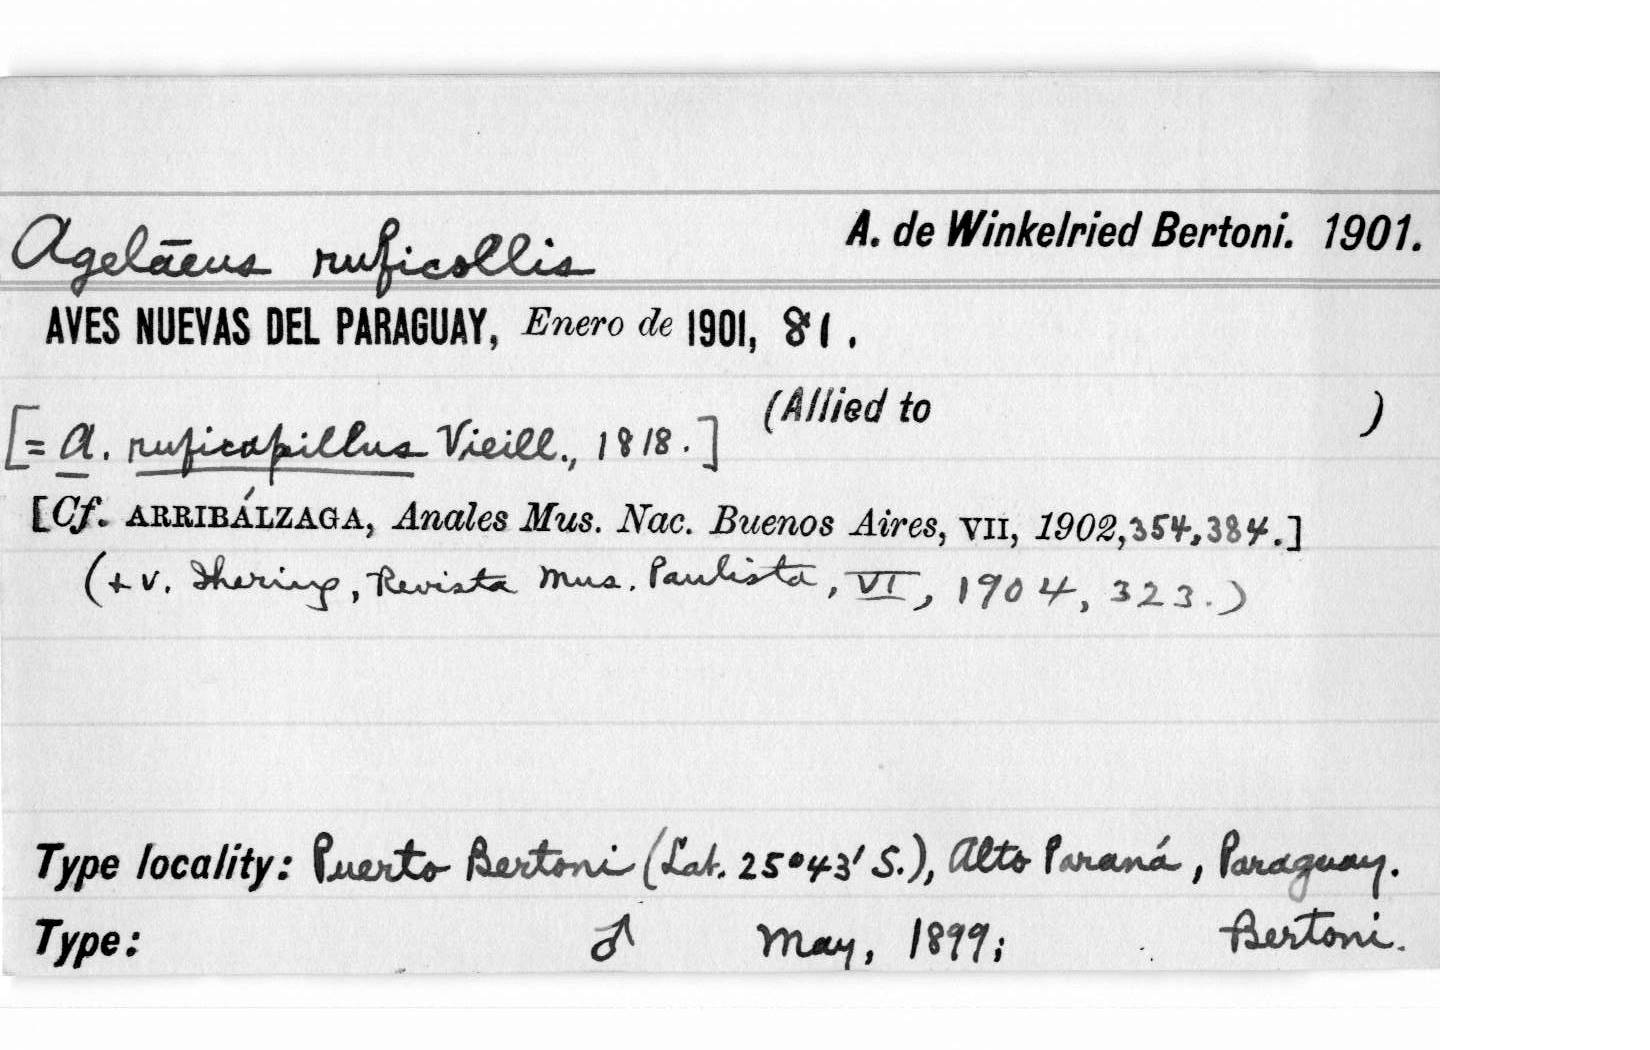 Agelāeus ruficollis A. de Winkelried Bertoni. 1901.
AVES NUEVAS DEL PARAGUAY, Enero de 1901, 81.
(Allied to )
[= A. ruficapillus Vieill., 1818.]
[Cf. ARRIBÁLZAGA, Anales Mus. Nac. Buenos Aires, VII, 1902, 354, 384.]
(+ v. Ihering, Revista Mus. Paulista, VI, 1904, 323.)
Type locality: Puerto Bertoni (Lat. 25°43' S.), Alto Paraná, Paraguay.
Type: ♂ May, 1899; Bertoni.